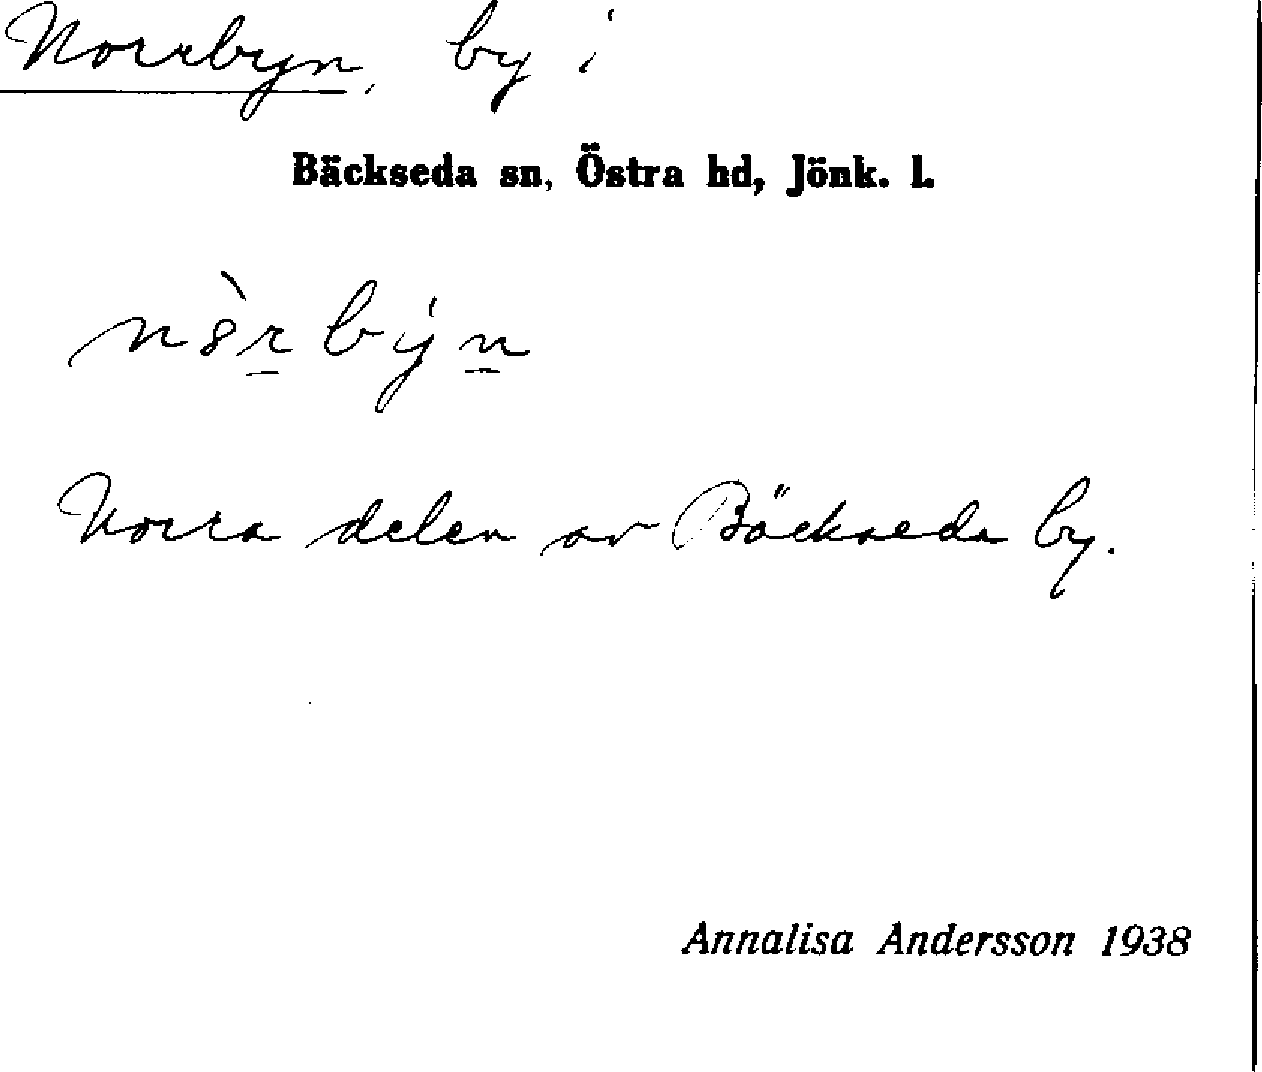 Norrbyn, by i
Bäckseda sn, Östra hd, Jönk. l.
nòr býn
Norra delen av Bäckseda by.
Annalisa Andersson 1938